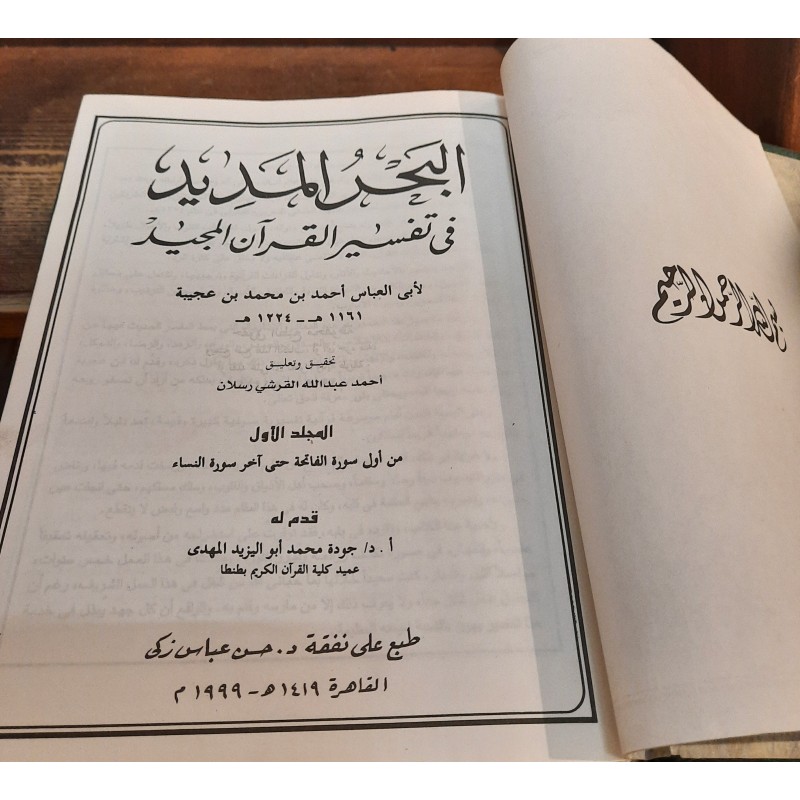 بسم الله الرحمن الرحيم
البَحْرُ المَدِيد
في تفسير القرآن المجيد
لأبى العباس أحمد بن محمد بن عجيبة
١١٦١ هـ - ١٢٢٤ هـ
تحقيق وتعليق
أحمد عبدالله القرشي رسلان
المجلد الأول
من أول سورة الفاتحة حتى آخر سورة النساء
قدم له
أ . د/ جودة محمد أبو اليزيد المهدى
عميد كلية القرآن الكريم بطنطا
طبع على نفقة د. حسن عباس زكى
القاهرة ١٤١٩ هـ - ١٩٩٩ م